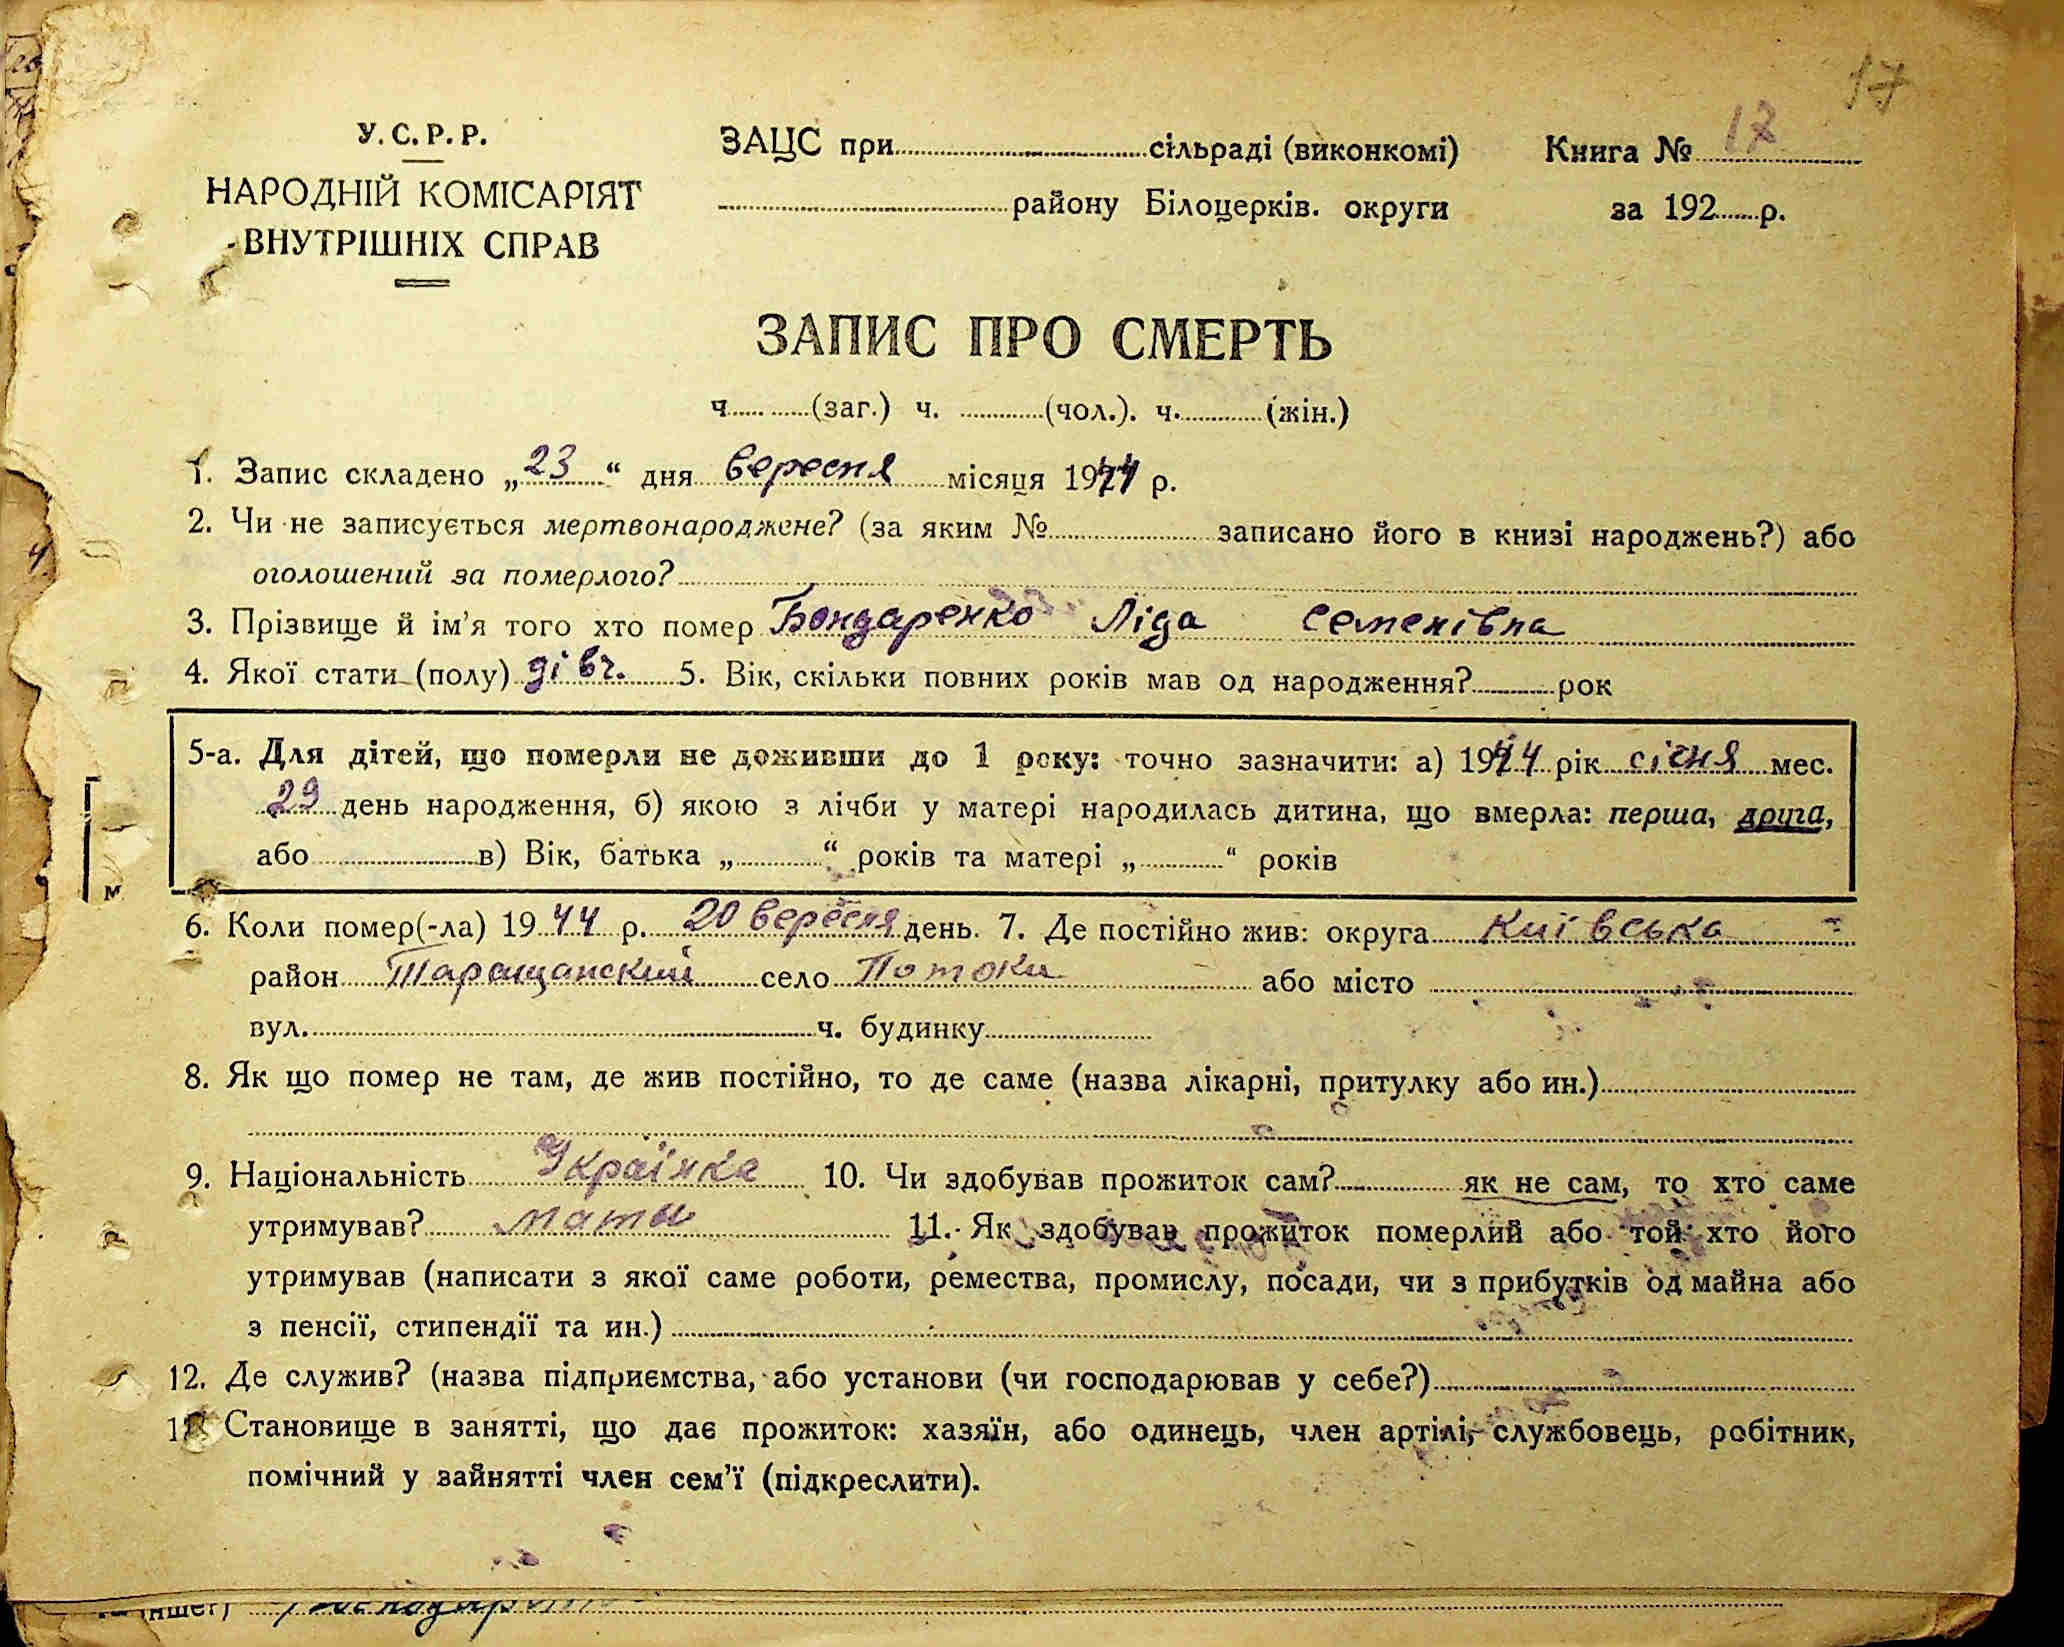 17
У. С. Р. Р.
НАРОДНІЙ КОМІСАРІЯТ
ВНУТРІШНІХ СПРАВ
ЗАЦС при сільраді (виконкомі)
району Білоцерків. округи
Книга № 17
за 192 р.
ЗАПИС ПРО СМЕРТЬ
ч. (заг.) ч. (чол.). ч. (жін.)
1. Запис складено „23“ дня вересня місяця 1944 р.
2. Чи не записується мертвонароджене? (за яким № записано його в книзі народжень?) або
оголошений за померлого?
3. Прізвище й ім'я того хто помер Бондаренко Ліда Семенівна
4. Якої стати (полу) дівч. 5. Вік, скільки повних років мав од народження? рок
5-а. Для дітей, що померли не доживши до 1 року: точно зазначити: а) 1944 рік січня мес.
29 день народження, б) якою з лічби у матері народилась дитина, що вмерла: перша, друга,
або в) Вік, батька „ “ років та матері „ “ років
м
6. Коли помер(-ла) 1944 р. 20 вересня день. 7. Де постійно жив: округа Київська
район Таращанский село Потоки або місто
вул. ч. будинку
8. Як що помер не там, де жив постійно, то де саме (назва лікарні, притулку або ин.)
9. Національність Українка 10. Чи здобував прожиток сам? як не сам, то хто саме
утримував? мати 11. Як здобував прожиток померлий або той хто його
утримував (написати з якої саме роботи, ремества, промислу, посади, чи з прибутків од майна або
з пенсії, стипендії та ин.)
12. Де служив? (назва підприємства, або установи (чи господарював у себе?)
Становище в занятті, що дає прожиток: хазяїн, або одинець, член артілі, службовець, робітник,
помічний у зайнятті член сем'ї (підкреслити).